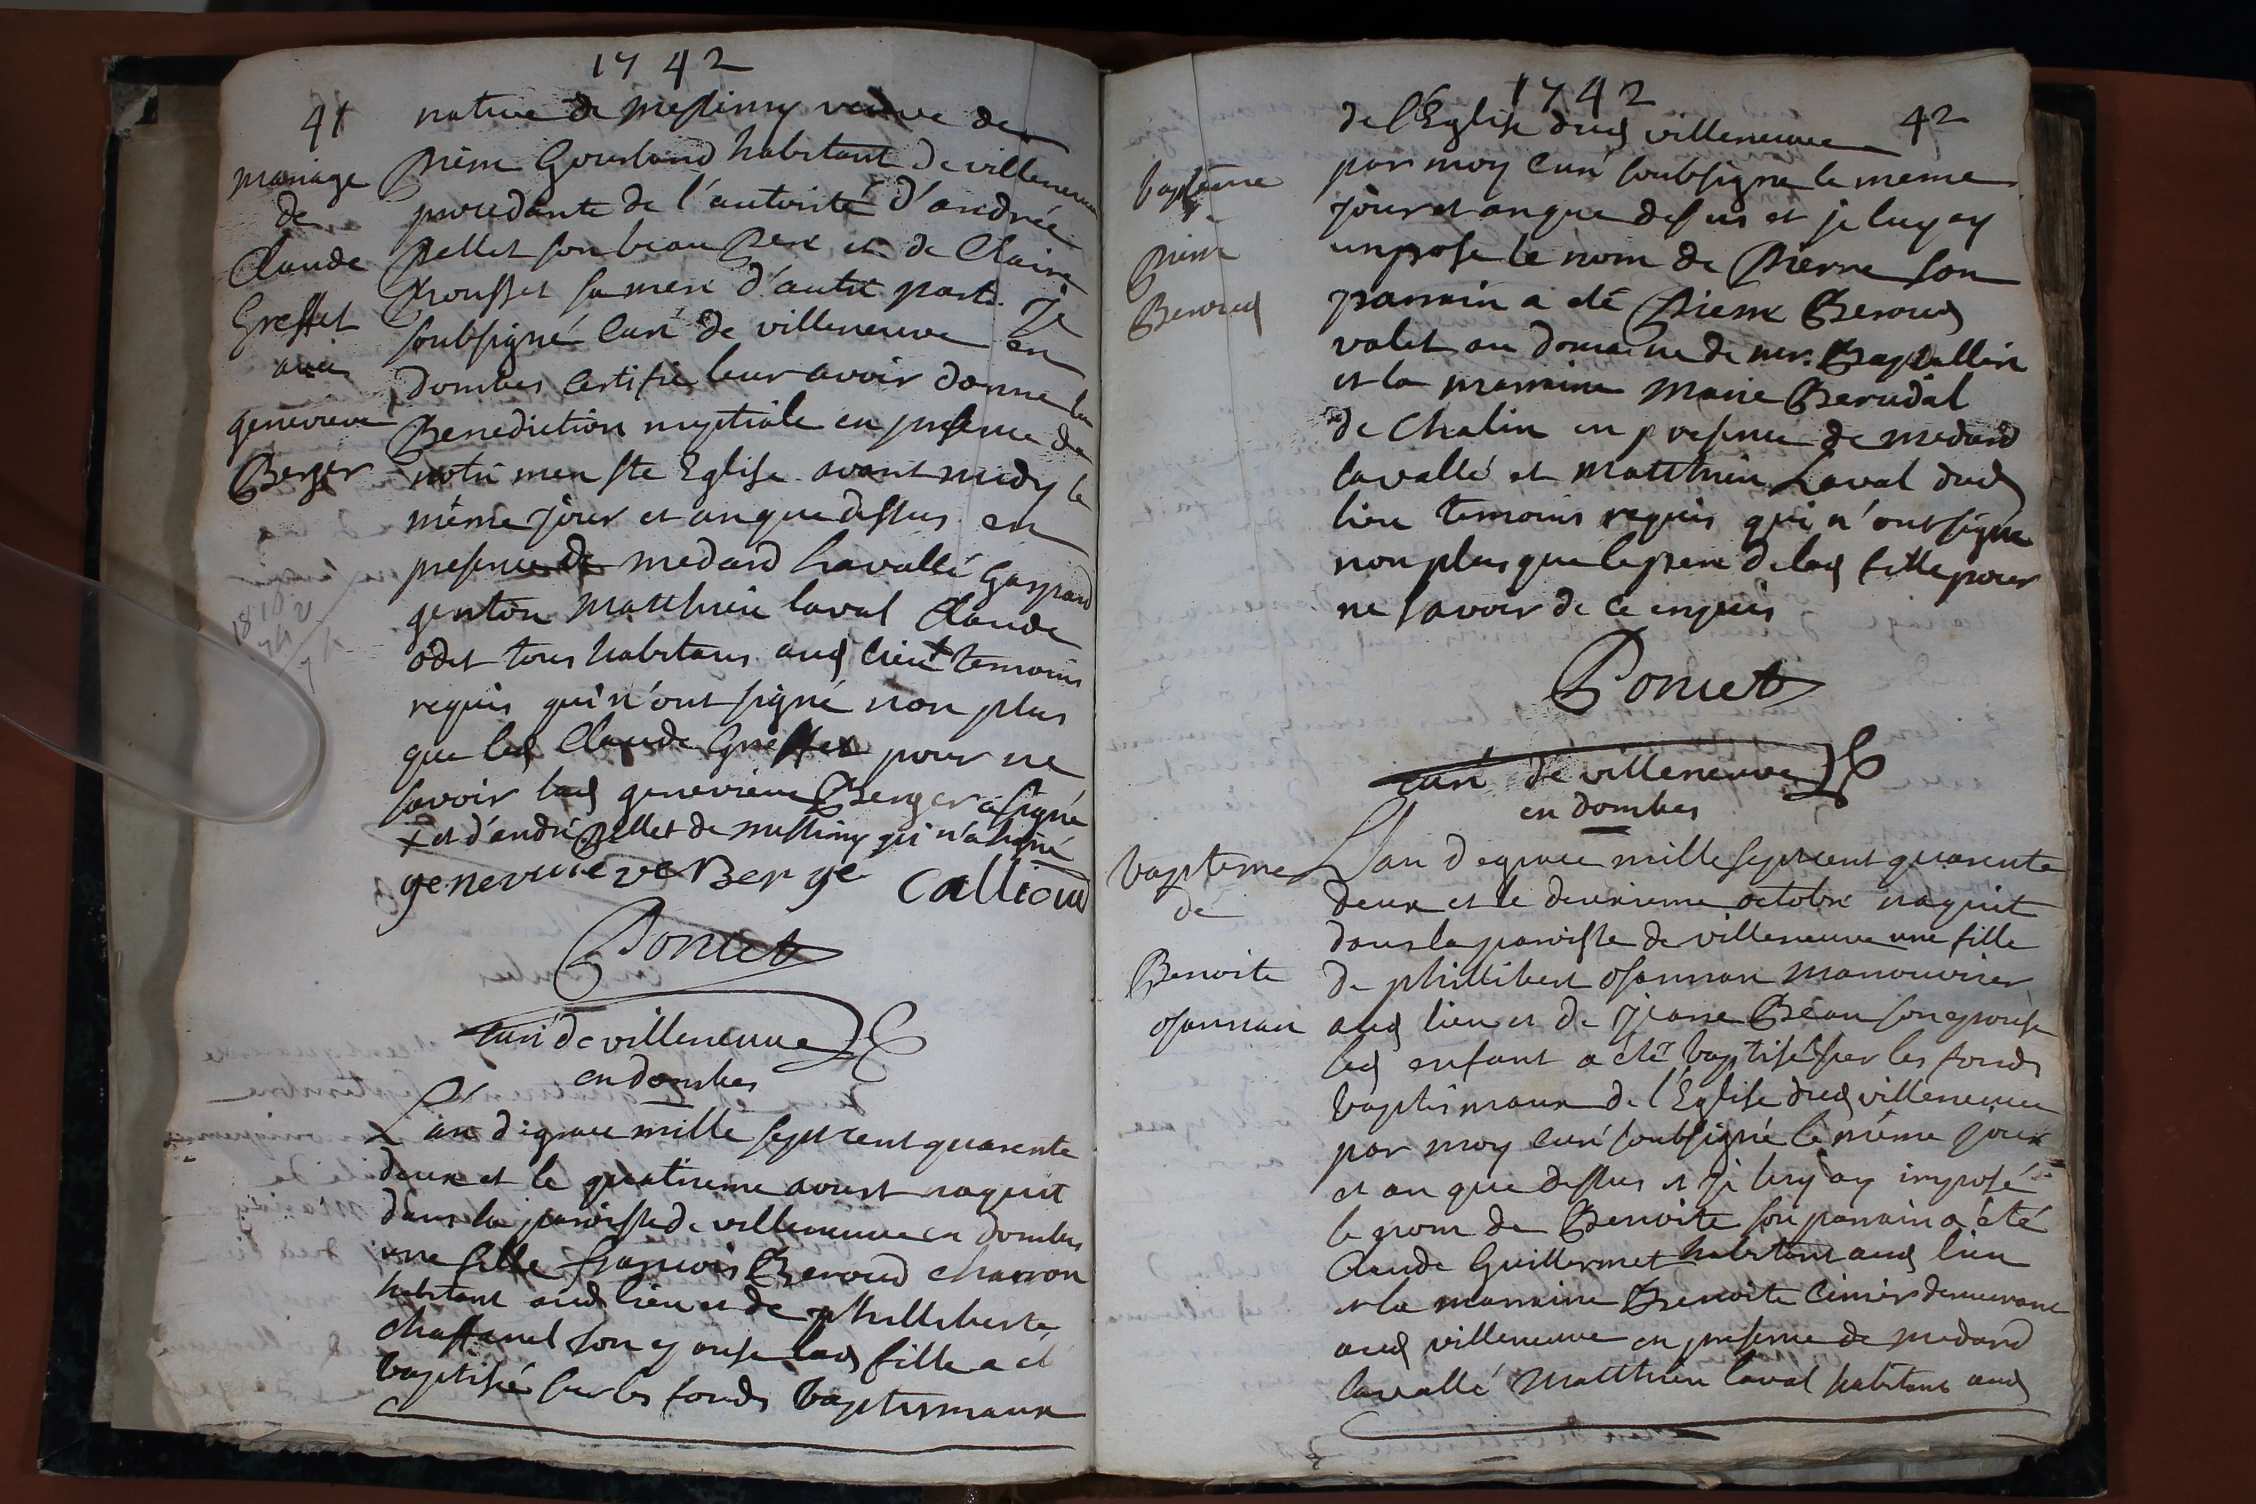 1742
41
mariage
de
Claude
Greffet
avec
genevieve
Berger
native de Messimy veuve de
Pierre Gourland habitant de villeneuve
procedante de l'autorité d'andré
Pellet son beau Pere et de Claire
Trousset sa mere d'autre part. Je
soubsigné Curé de villeneuve en
dombes Certifie leur avoir donne la
Benediction nuptiale en presence de
notre mere Ste Eglise avant midy le
même jour et an que dessus en
presence de medard Lavallé Gaspard
genton Matthieu laval Claude
odet tous habitans aud lieu + temoins
requis qui n'ont signé non plus
que led Claude Greffet pour ne
savoir lad genevieve Berger a signé
+ et d'andré Pellet de messimy qui n'a signé
genevuieve Bergé Calliond
Poncet
curé de villeneuve
en dombes
L'an de grace mille sept cent quarente
deux et le quatrieme aoust naquit
dans la paroisse de villeneuve en dombes
une fille françois Beroud charron
habitant aud lieu et de phillिberte
chaffanel son epouse lad fille a eté
baptisée sur les fonds baptismaux
1742
42
bapteme
Pierre
Beroud
de l'Eglise dud villeneuve
par moy Curé soubsigné le meme
jour et an que dessus et je luy ay
imposé le nom de Pierre son
parrain a eté Pierre Beroud
valet au domaine de mr.
et la marraine Marie Berudal
de Chalin en presence de medard
lavallé et Matthieu Laval dud
lieu temoins requis qui n'ont signé
non plus que le pere de lad fille pour
ne savoir de ce enquis
Poncet
curé de villeneuve
en dombes
bapteme
de
Benoite
osannan
L'an de grace mille sept cent quarente
deux et le deuxieme octobre naquit
dans la paroisse de villeneuve une fille
de phillibert osannan manouvrier
aud lieu et de Jeanne Beau son epouse
led enfant a eté baptisé sur les fonds
baptismaux de l'Eglise dud villeneuve
par moy curé soubsigné le même jour
et an que dessus et je luy ay imposé
le nom de Benoite son parrain a été
Claude Guillermet habitant aud lieu
et la marraine Benoite Cimier demeurant
aud villeneuve en presence de medard
lavallé Matthieu laval habitans aud